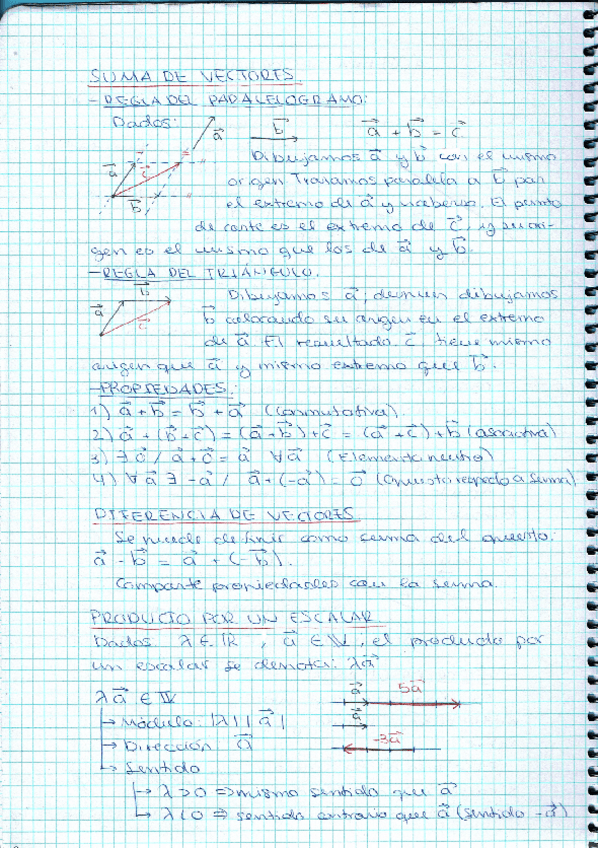 SUMA DE VECTORES
- REGLA DEL PARALELOGRAMO:
Dados: a⃗ b⃗ a⃗ + b⃗ = c⃗
Dibujamos a⃗ y b⃗ con el mismo
a⃗ c⃗ origen Trazamos paralela a b⃗ por
b⃗ el extremo de a⃗ y viceversa. El punto
de corte es el extremo de c⃗, y su ori-
gen es el mismo que los de a⃗ y b⃗.
- REGLA DEL TRIÁNGULO.
b⃗ Dibujamos a⃗, después dibujamos
a⃗ c⃗ b⃗ colocando su origen en el extremo
de a⃗. El resultado c⃗, tiene mismo
origen que a⃗ y mismo extremo que b⃗.
- PROPIEDADES:
1) a⃗ + b⃗ = b⃗ + a⃗ (conmutativa).
2) a⃗ + (b⃗ + c⃗) = (a⃗ + b⃗) + c⃗ = (a⃗ + c⃗) + b⃗ (asociativa)
3) ∃ o⃗ / a⃗ + o⃗ = a⃗ ∀ a⃗ (Elemento neutro)
4) ∀ a⃗ ∃ -a⃗ / a⃗ + (-a⃗) = o⃗ (opuesto respecto a suma)
DIFERENCIA DE VECTORES
Se puede definir como suma del opuesto:
a⃗ - b⃗ = a⃗ + (-b⃗).
Comparte propiedades con la suma.
PRODUCTO POR UN ESCALAR
Dados λ ∈ ℝ, a⃗ ∈ V, el producto por
un escalar se denota: λa⃗
λa⃗ ∈ V a⃗ 5a⃗
→ Módulo: |λ| |a⃗| a⃗
→ Dirección a⃗ -3a⃗
→ Sentido
→ λ > 0 ⇒ mismo sentido que a⃗
→ λ < 0 ⇒ sentido contrario que a⃗ (sentido -a⃗)